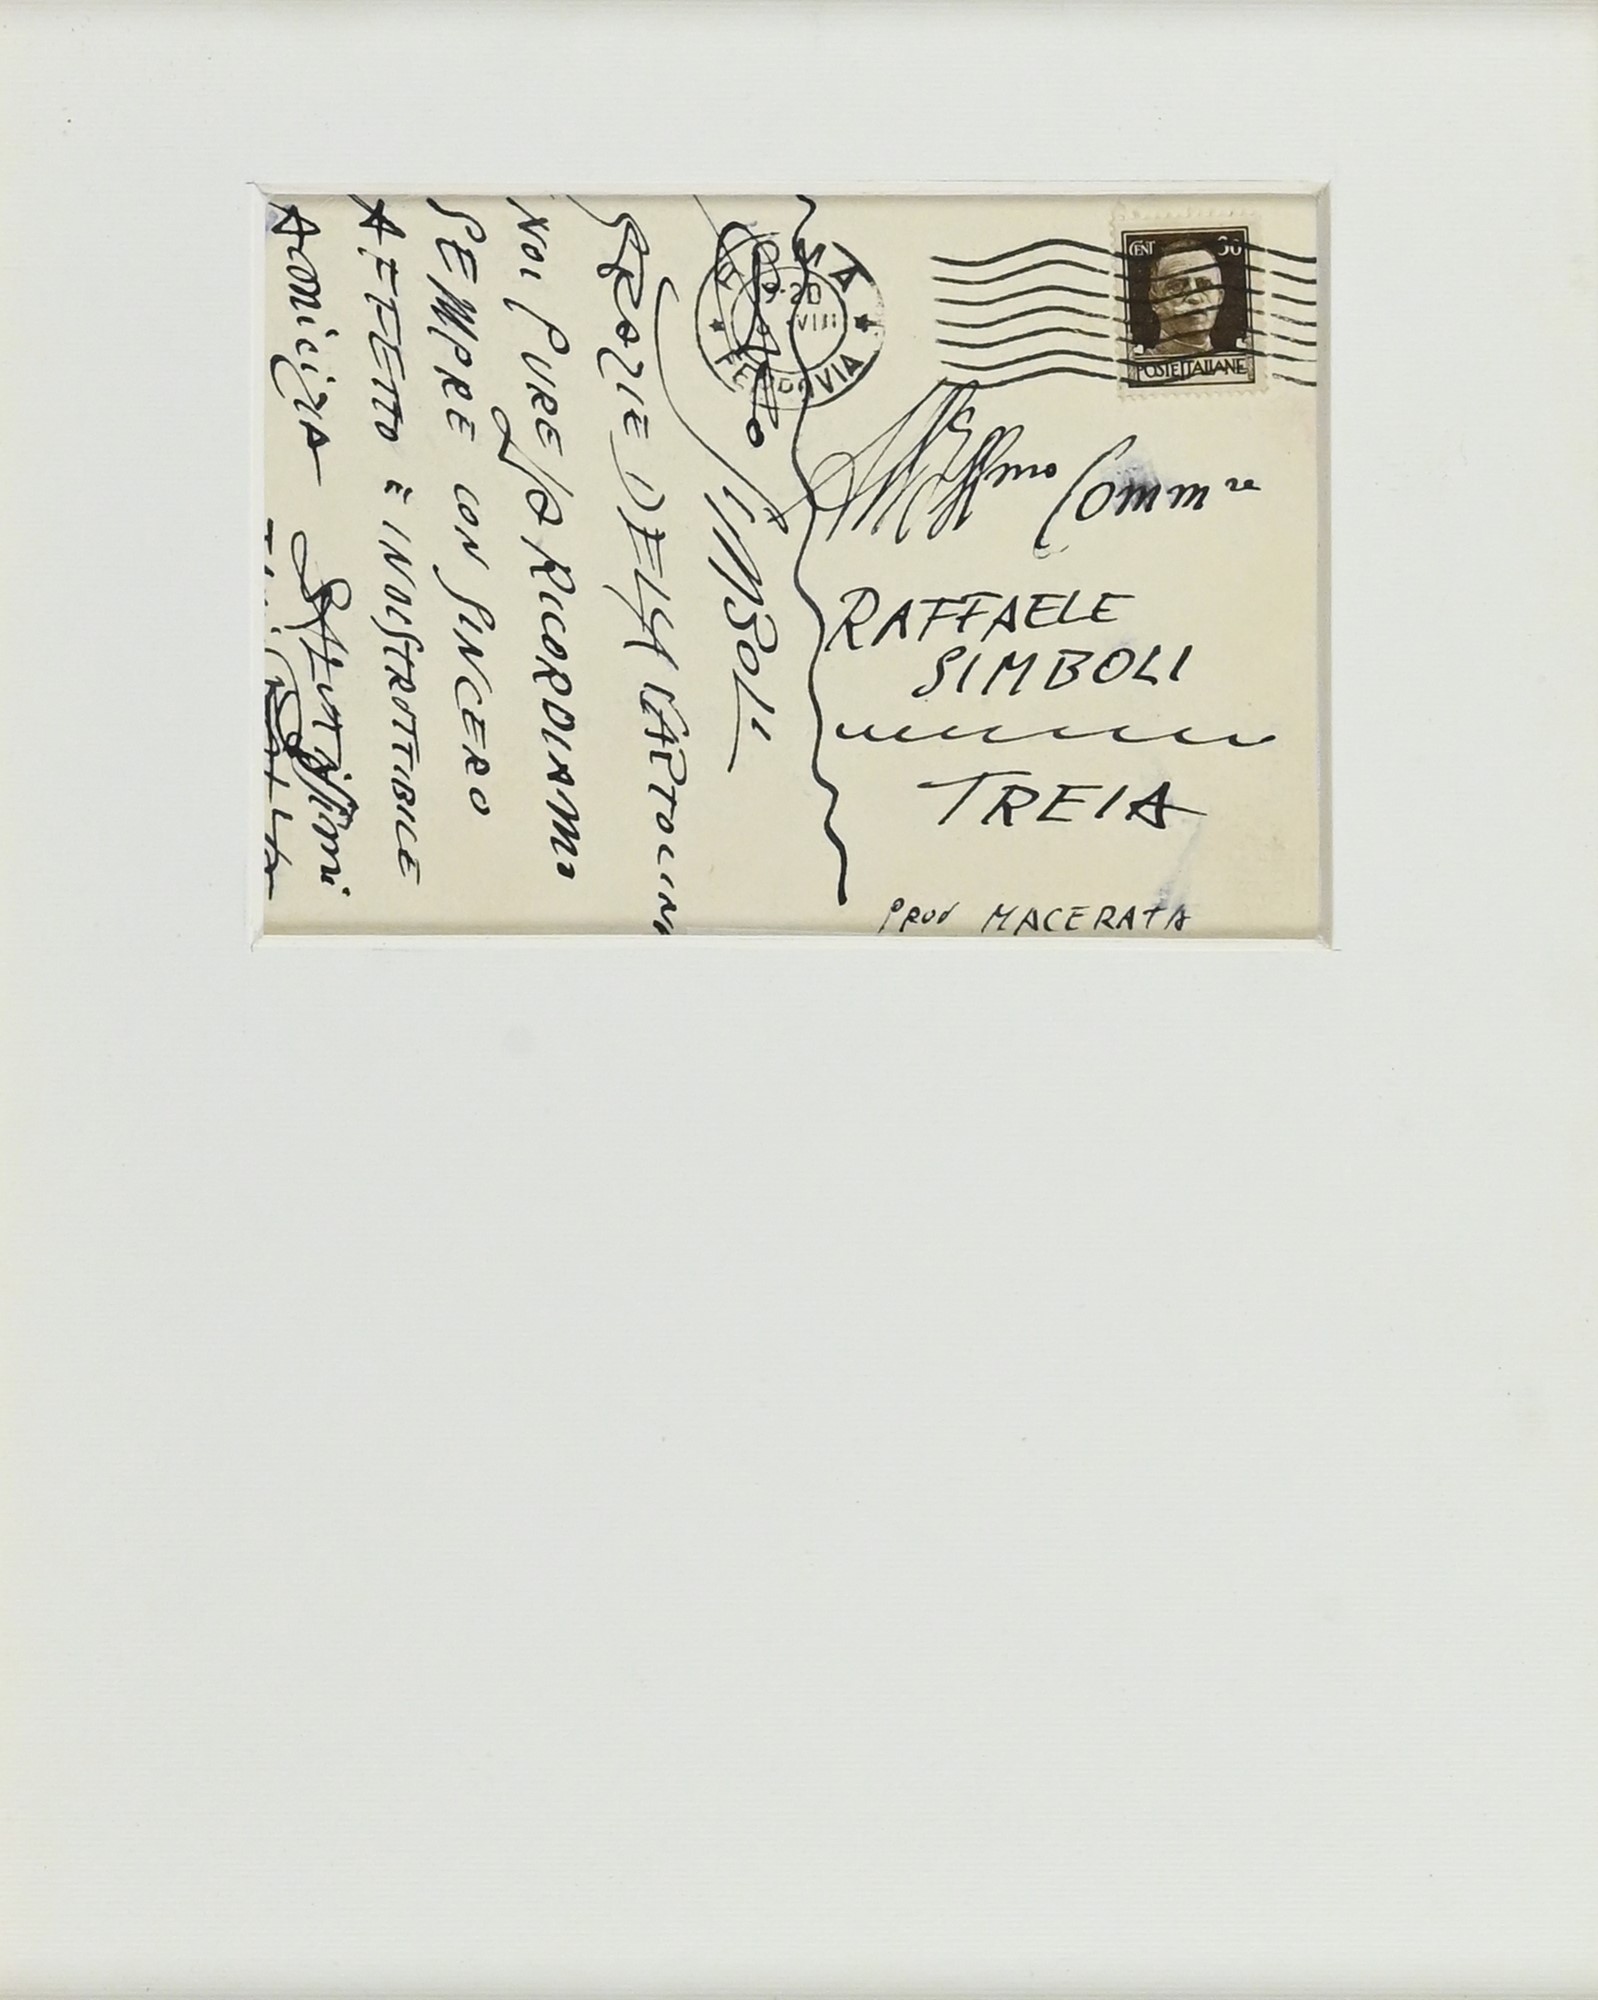 Caro
SIMBOLI
GRAZIE DELLA CARTOLINA
NOI PURE LA RICORDIAMO
SEMPRE CON SINCERO
AFFETTO E INDISTRUTTIBILE
AMICIZIA
Saluti
ROMA
FERROVIA
20
VIII
CENT 30
POSTE ITALIANE
Ill mo Comm re
RAFFAELE
SIMBOLI
TREIA
PROV MACERATA